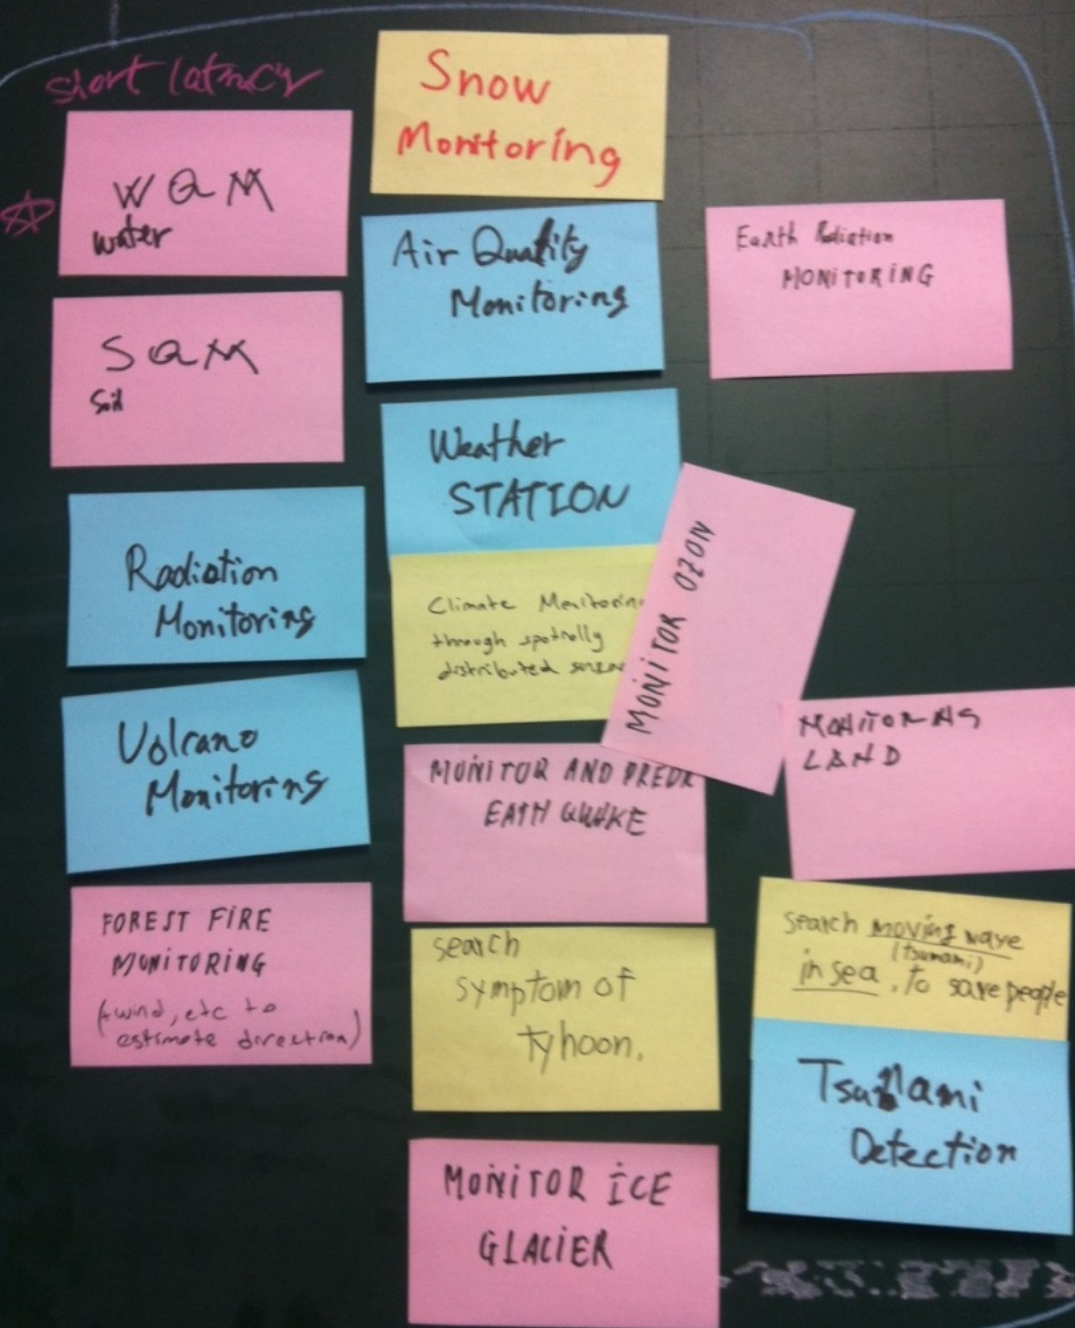 short latency
WQM
water
SQM
Soil
Radiation
Monitoring
Volcano
Monitoring
FOREST FIRE
MONITORING
(+wind, etc to
estimate direction)
Snow
Monitoring
Air Quality
Monitoring
Weather
STATION
Climate Monitoring
through spatially
distributed
MONITOR AND
EATH QUAKE
search
symptom of
tyhoon.
MONITOR ICE
GLACIER
Earth Radiation
MONITORING
MONITOR OZON
MONITORING
LAND
Search moving wave
(tsunami)
in sea, to save people
Tsunami
Detection